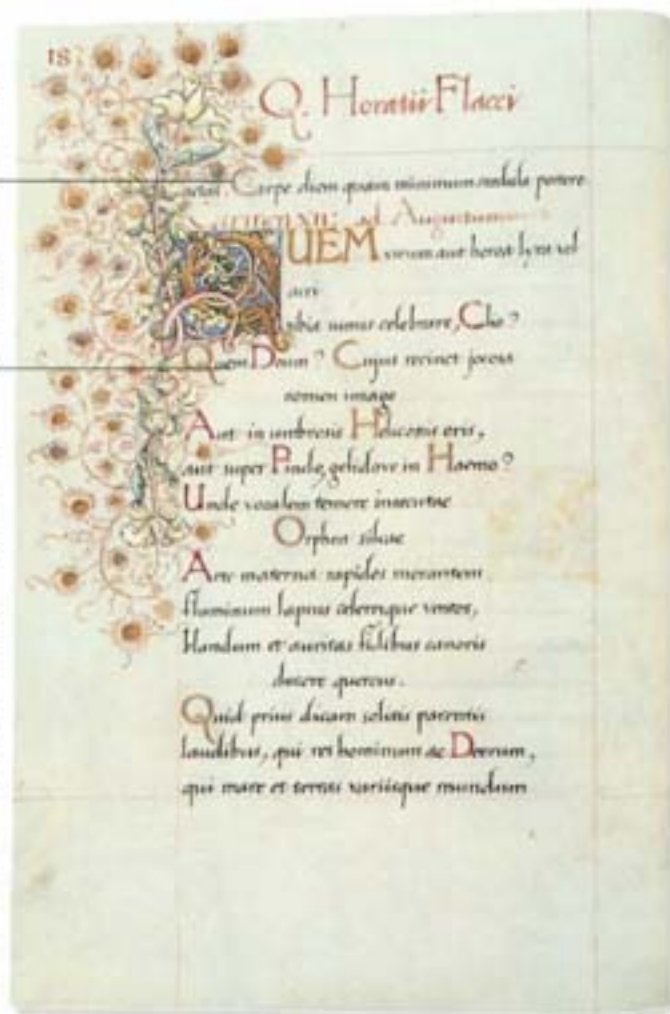 18
Q. Horatii Flacci
aetas. Carpe diem quam minimum credula postero
Carmen XII: ad Augustum
QUEM virum aut heroa lyra vel
acri
tibia sumis celebrare, Clio?
Quem Deum? Cujus recinet jocosa
nomen imago
Aut in umbrosis Heliconis oris,
aut super Pindo, gelidove in Haemo?
Unde vocalem temere insecutae
Orphea silvae
Arte materna rapidos morantem
fluminum lapsus celeresque ventos,
blandum et auritas fidibus canoris
ducere quercus.
Quid prius dicam solitis parentis
laudibus, qui res hominum ac Deorum,
qui mare et terras variisque mundum